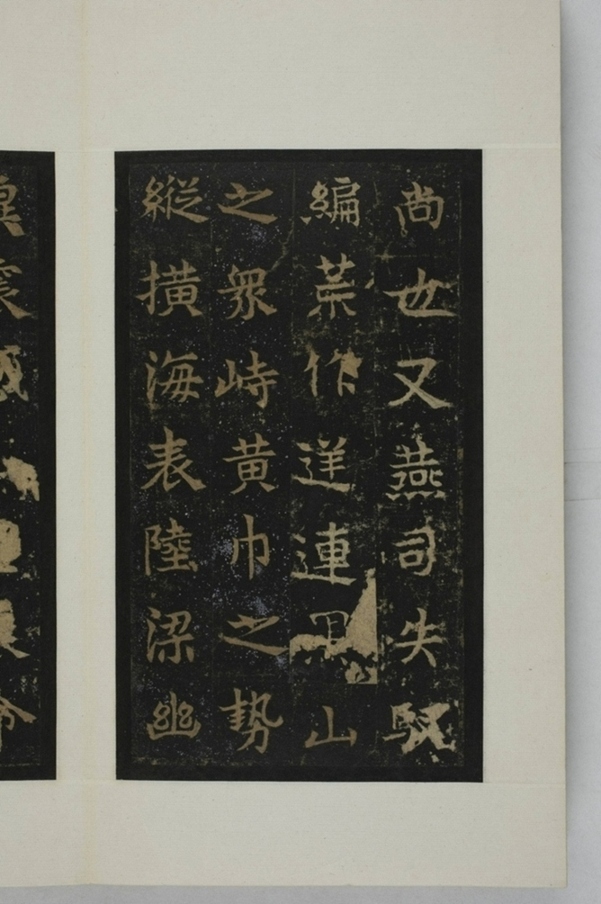 尚世又燕司失馭
編荒作逆連山
之衆峙黄巾之勢
縱橫海表陸梁幽